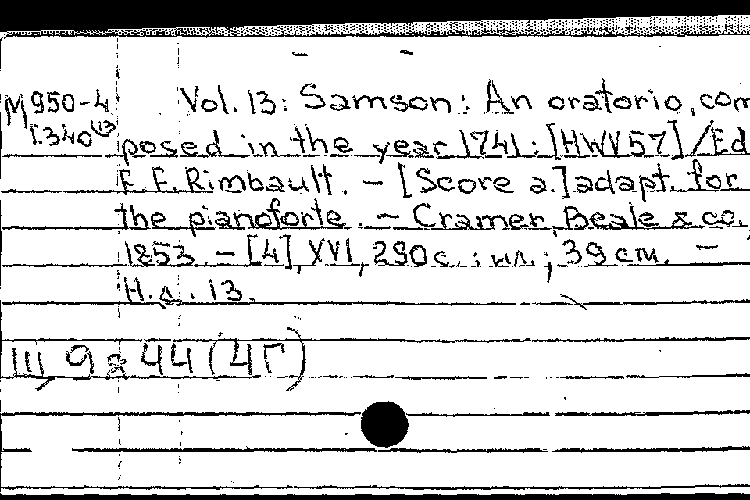 M950-4 Vol. 13: Samson: An oratorio, com
I.340(13) posed in the year 1741: [HWV57] / Ed
E. F. Rimbault. — [Score a.] adapt. for
the pianoforte. — Cramer, Beale & co.,
1853. — [4], XVI, 290 с.: ил.; 39 см. —
Н.д. 13.
Ш 9 г 44 (4Г)